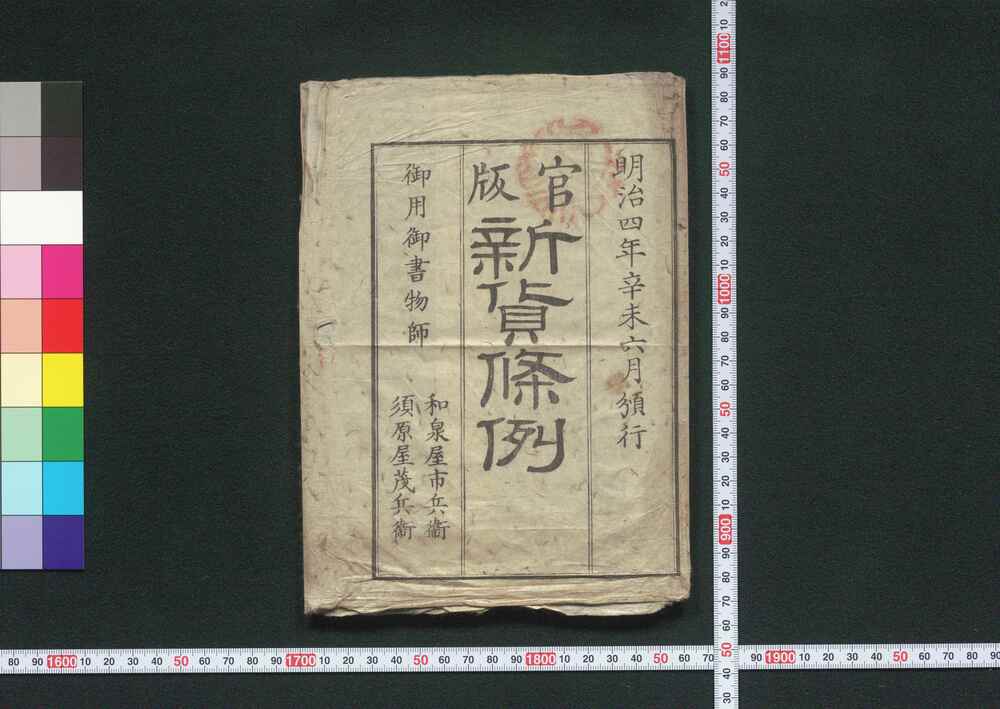 明治四年辛未六月頒行
官版
新貨條例
御用御書物師
和泉屋市兵衞
須原屋茂兵衞
80 90 1600 10 20 30 40 50 60 70 80 90 1700 10 20 30 40 50 60 70 80 90 1800 10 20 30 40 50 60 70 90 1900 10 20 30 40 50 60 70 80 90
10 1100 90 80 70 60 50 40 30 20 10 1000 90 80 70 60 50 40 30 20 10 900 90 80 70 60 50 40 30